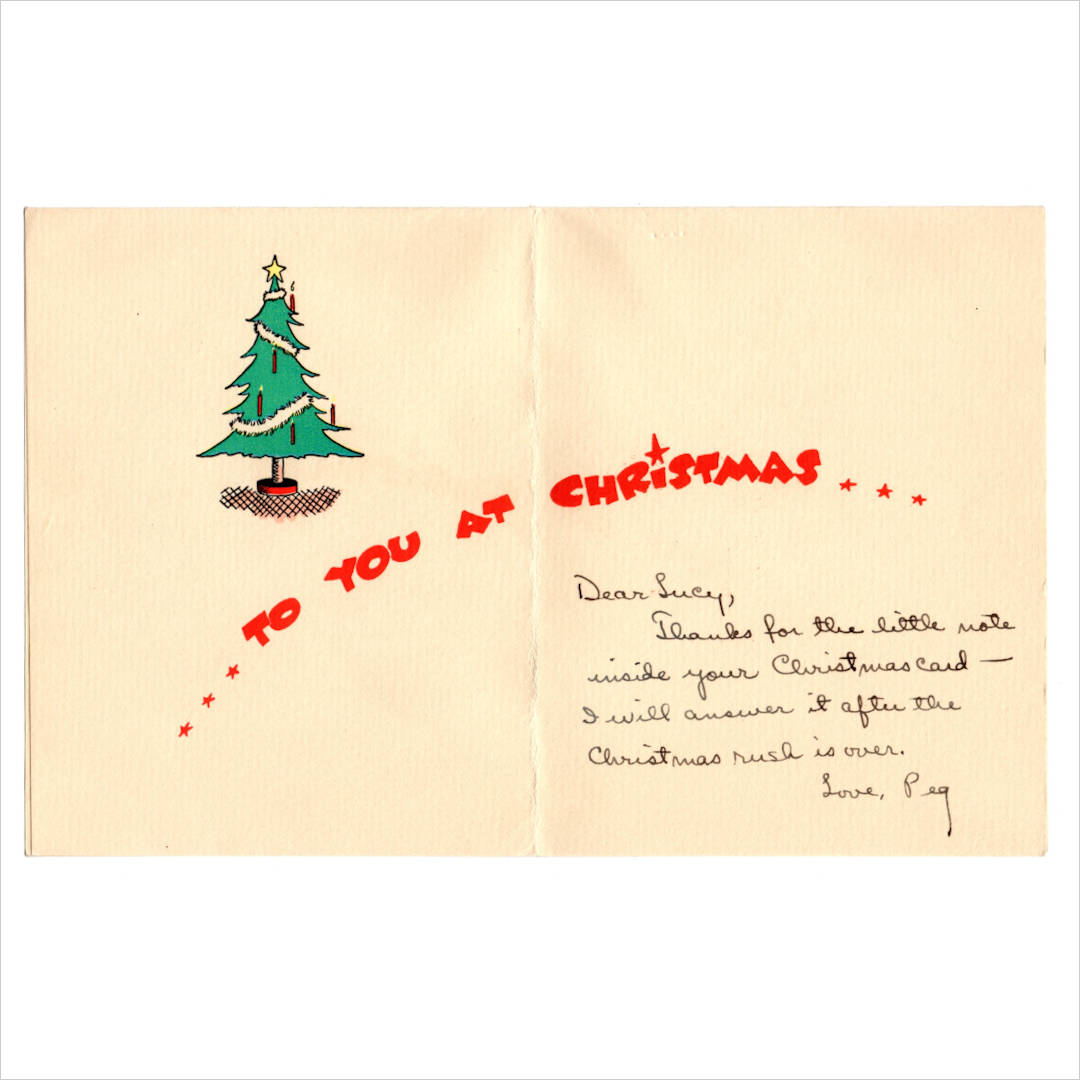 TO YOU AT CHRISTMAS...
Dear Lucy,
Thanks for the little note
inside your Christmas card —
I will answer it after the
Christmas rush is over.
Love, Peg